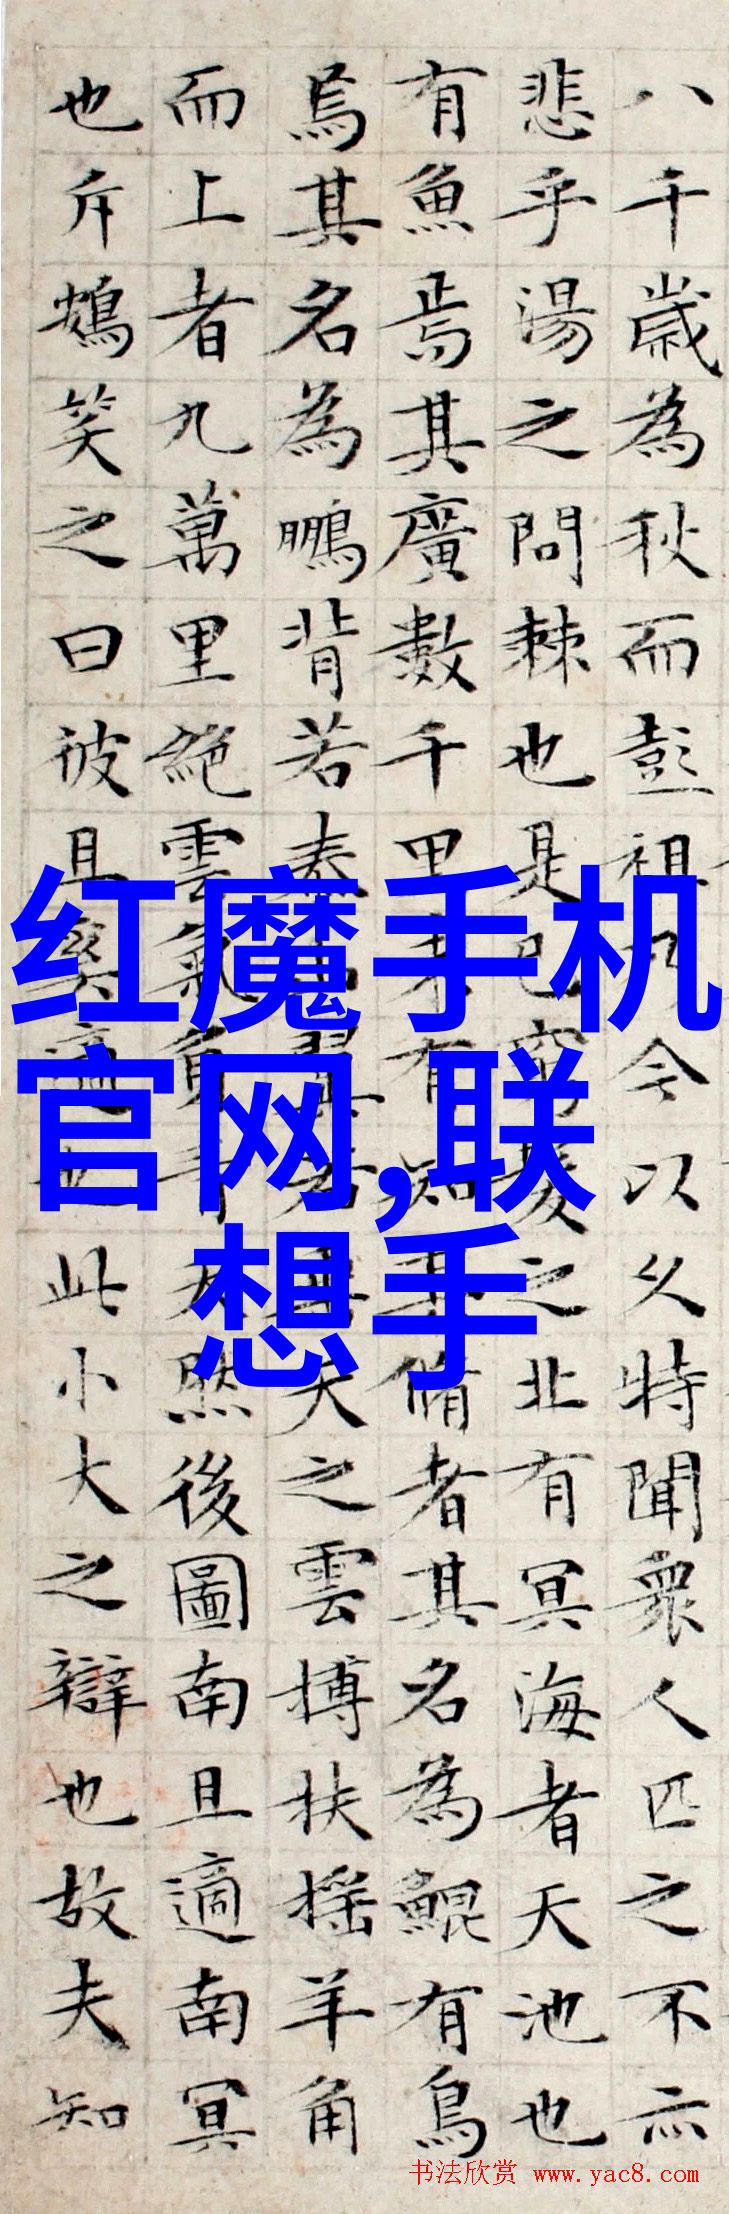 八千歲為秋而彭祖乃今以久特聞衆人匹之不亦
悲乎湯之問棘也是已窮髮之北有冥海者天池也
有魚焉其廣數千里未有知其脩者其名為鯤有鳥
焉其名為鵬背若泰山翼若垂天之雲搏扶搖羊角
而上者九萬里絕雲氣負青天然後圖南且適南冥
也斥鴳笑之曰彼且奚適也此小大之辯也故夫知
红魔手机
官网,联
想手
书法欣赏 www.yac8.com